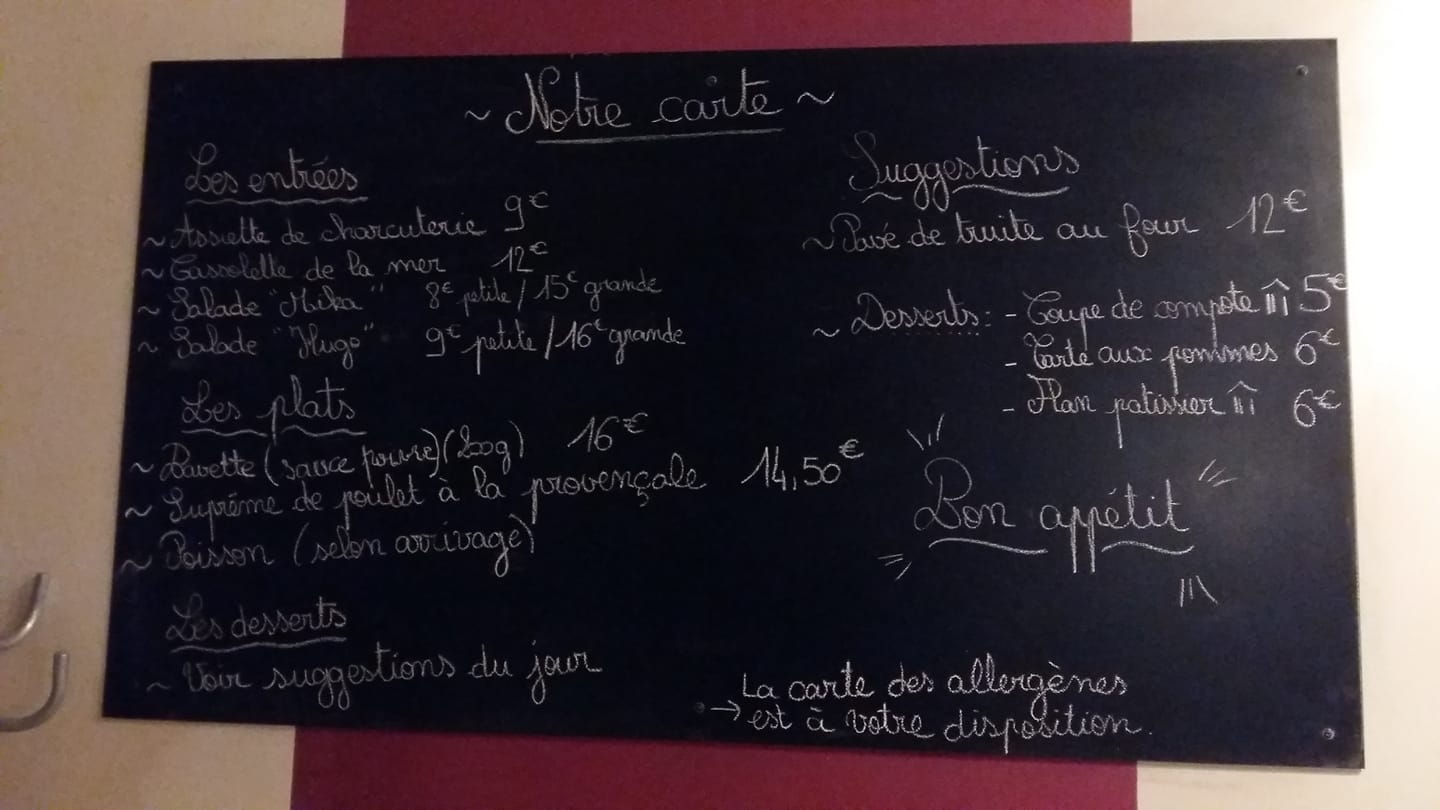 ~ Notre carte ~
Les entrées
~ Assiette de charcuterie 9€
~ Cassolette de la mer 12€
~ Salade "Mika" 8€ petite / 15€ grande
~ Salade "Hugo" 9€ petite / 16€ grande
Les plats
~ Bavette (sauce poivre) (200g) 16€
~ Suprême de poulet à la provençale 14,50€
~ Poisson (selon arrivage)
Les desserts
~ Voir suggestions du jour
Suggestions
~ Pavé de truite au four 12€
~ Desserts: - Coupe de compote 5€
- Tarte aux pommes 6€
- Flan patissier 6€
Bon appétit
La carte des allergènes
→ est à votre disposition.